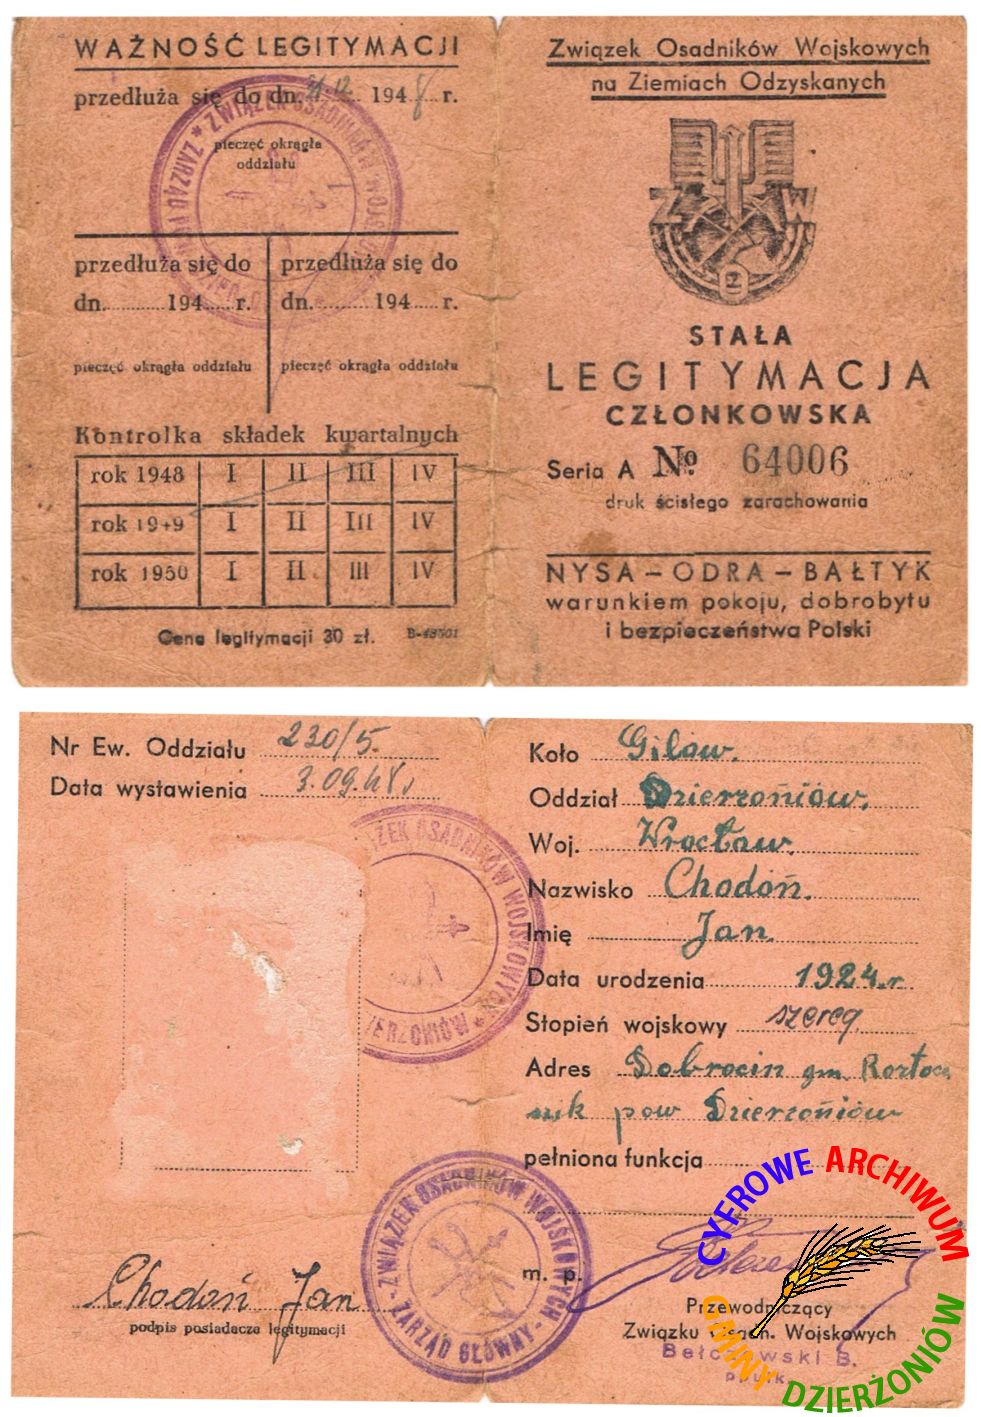 WAŻNOŚĆ LEGITYMACJI
przedłuża się do dn. 31.12. 1948 r.
pieczęć okrągła
oddziału
przedłuża się do
dn. 194 r.
pieczęć okrągła oddziału
przedłuża się do
dn. 194 r.
pieczęć okrągła oddziału
Kontrolka składek kwartalnych
rok 1948 I II III IV
rok 1949 I II III IV
rok 1950 I II III IV
Cena legitymacji 30 zł. B-48501
ZWIĄZEK OSADNIKÓW
ZARZĄD
Związek Osadników Wojskowych
na Ziemiach Odzyskanych
Z W
STAŁA
LEGITYMACJA
CZŁONKOWSKA
Seria A № 64006
druk ścisłego zarachowania
NYSA – ODRA – BAŁTYK
warunkiem pokoju, dobrobytu
i bezpieczeństwa Polski
Nr Ew. Oddziału 230/5.
Data wystawienia 3.09.48
OSADNIKÓW WOJSKOWYCH
ZWIĄZEK OSADNIKÓW WOJSKOWYCH
ZARZĄD GŁÓWNY
Chodoń Jan
podpis posiadacza legitymacji
Koło Giłów.
Oddział Dzierżoniów.
Woj. Wrocław.
Nazwisko Chodoń.
Imię Jan
Data urodzenia 1924 r
Stopień wojskowy szereg.
Adres Dobrocin gm. Roztocz
nik pow Dzierżoniów
pełniona funkcja
m. p.
Przewodniczący
Związku Osadn. Wojskowych
B.
ppułk.
CYFROWE ARCHIWUM
GMINY DZIERŻONIÓW